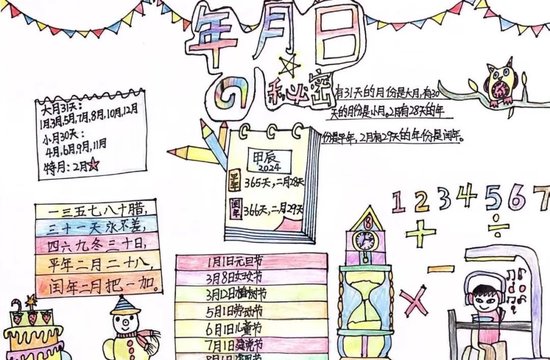 年月日
的秘密
有31天的月份是大月,有30
天的月份是小月。2月有28天的年
份是平年,2月有29天的年份是闰年。
大月31天:
1月3月,5月,7月,8月,10月,12月
小月30天:
4月,6月,9月,11月
特月:2月
甲辰
2024
平年
365天,二月28天
闰年
366天,二月29天
1 2 3 4 5 6 7
+ ÷
- ×
一三五七八十腊,
三十一天永不差,
四六九冬三十日,
平年二月二十八
闰年二月把一加。
1月1日元旦节
3月8日妇女节
3月12日植树节
5月1日劳动节
6月1日儿童节
7月1日建党节